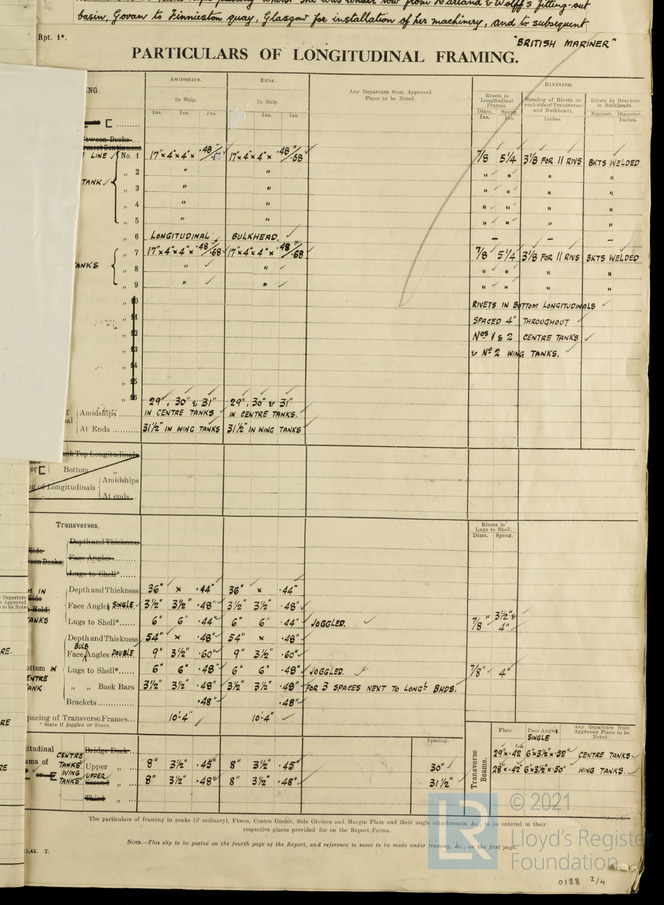 basin, Govan to Finnieston quay, Glasgow for installation of her machinery, and to subsequent
Rpt. 1*.
"BRITISH MARINER"
PARTICULARS OF LONGITUDINAL FRAMING.
AMIDSHIPS. ENDS. RIVETING.
In Ship. In Ship. Any Departure from Approved Plans to be Noted. Rivets in Longitudinal Frames. Spacing of Rivets on each side of Transverses and Bulkheads. Rivets in Brackets to Bulkheads.
Ins. Ins. Ins. Ins. Ins. Ins. Diam. Ins. Spcng. Ins. Inches. Number. Diameter Inches.
LINE No. 1 17" x 4" x 4" x 17" x 4" x 4" x .48/.68 7/8 5 1/4 3 1/8 FOR 11 RIVS BKTS WELDED
" 2 " " " " " "
TANK " 3 " " " " " "
" 4 " " " " " "
" 5 " " " " " "
" 6 LONGITUDINAL BULKHEAD. - - - -
" 7 17" x 4" x 4" x .48/.68 17" x 4" x 4" x .48/.68 7/8 5 1/4 3 1/8 FOR 11 RIVS BKTS WELDED
TANKS " 8 " " " " " "
" 9 " " " " " "
" 10 RIVETS IN BOTTOM LONGITUDINALS
" 11 SPACED 4" THROUGHOUT
" 12 Nos 1 & 2 CENTRE TANKS
" 13 & No 2 WING TANKS.
" 14
" 15
" 16
29", 30" & 31" 29", 30" & 31"
Amidships IN CENTRE TANKS IN CENTRE TANKS.
At Ends 31 1/2" IN WING TANKS 31 1/2" IN WING TANKS
Tank Top Longitudinals
Bottom "
of Longitudinals Amidships
At ends
Transverses. Rivets in Lugs to Shell.
Diam. Spcng.
Depth and Thickness
Face Angles
Lugs to Shell*
Depth and Thickness 36" x .44" 36" x .44"
Face Angles SINGLE 3 1/2" 3 1/2" .48" 3 1/2" 3 1/2" .48"
Lugs to Shell* 6" 6" .44" 6" 6" .44" JOGGLED. 7/8" 3 1/2" & 4"
Depth and Thickness 54" x .48" 54" x .48"
BULB
Face Angles DOUBLE 9" 3 1/2" .60" 9" 3 1/2" .60"
Lugs to Shell* 6" 6" .48" 6" 6" .48" JOGGLED. 7/8" 4"
" " Back Bars 3 1/2" 3 1/2" .48" 3 1/2" 3 1/2" .48" FOR 3 SPACES NEXT TO LONGL BHDS.
Brackets .48" .48"
Spacing of Transverse Frames 10'-4" 10'-4"
* State if joggled or liners.
Spacing. Transverse Beams. Plate. Face Angles. SINGLE Any departure from Approved Plans to be Noted.
CENTRE TANKS Bridge Deck
Upper " 8" 3 1/2" .45" 8" 3 1/2" .45" 30" CENTRE TANKS
WING TANKS UPPER Second " 8" 3 1/2" .48" 8" 3 1/2" .48" 31 1/2" WING TANKS.
Third "
The particulars of framing in peaks (if ordinary), Floors, Centre Girder, Side Girders and Margin Plate and their angle attachments, &c., to be entered in their
respective places provided for on the Report Forms.
NOTE.—This slip to be pasted on the fourth page of the Report, and reference to same to be made under framing, &c., on the first page.
© 2021
LR Lloyd's Register
Foundation
0188 2/4